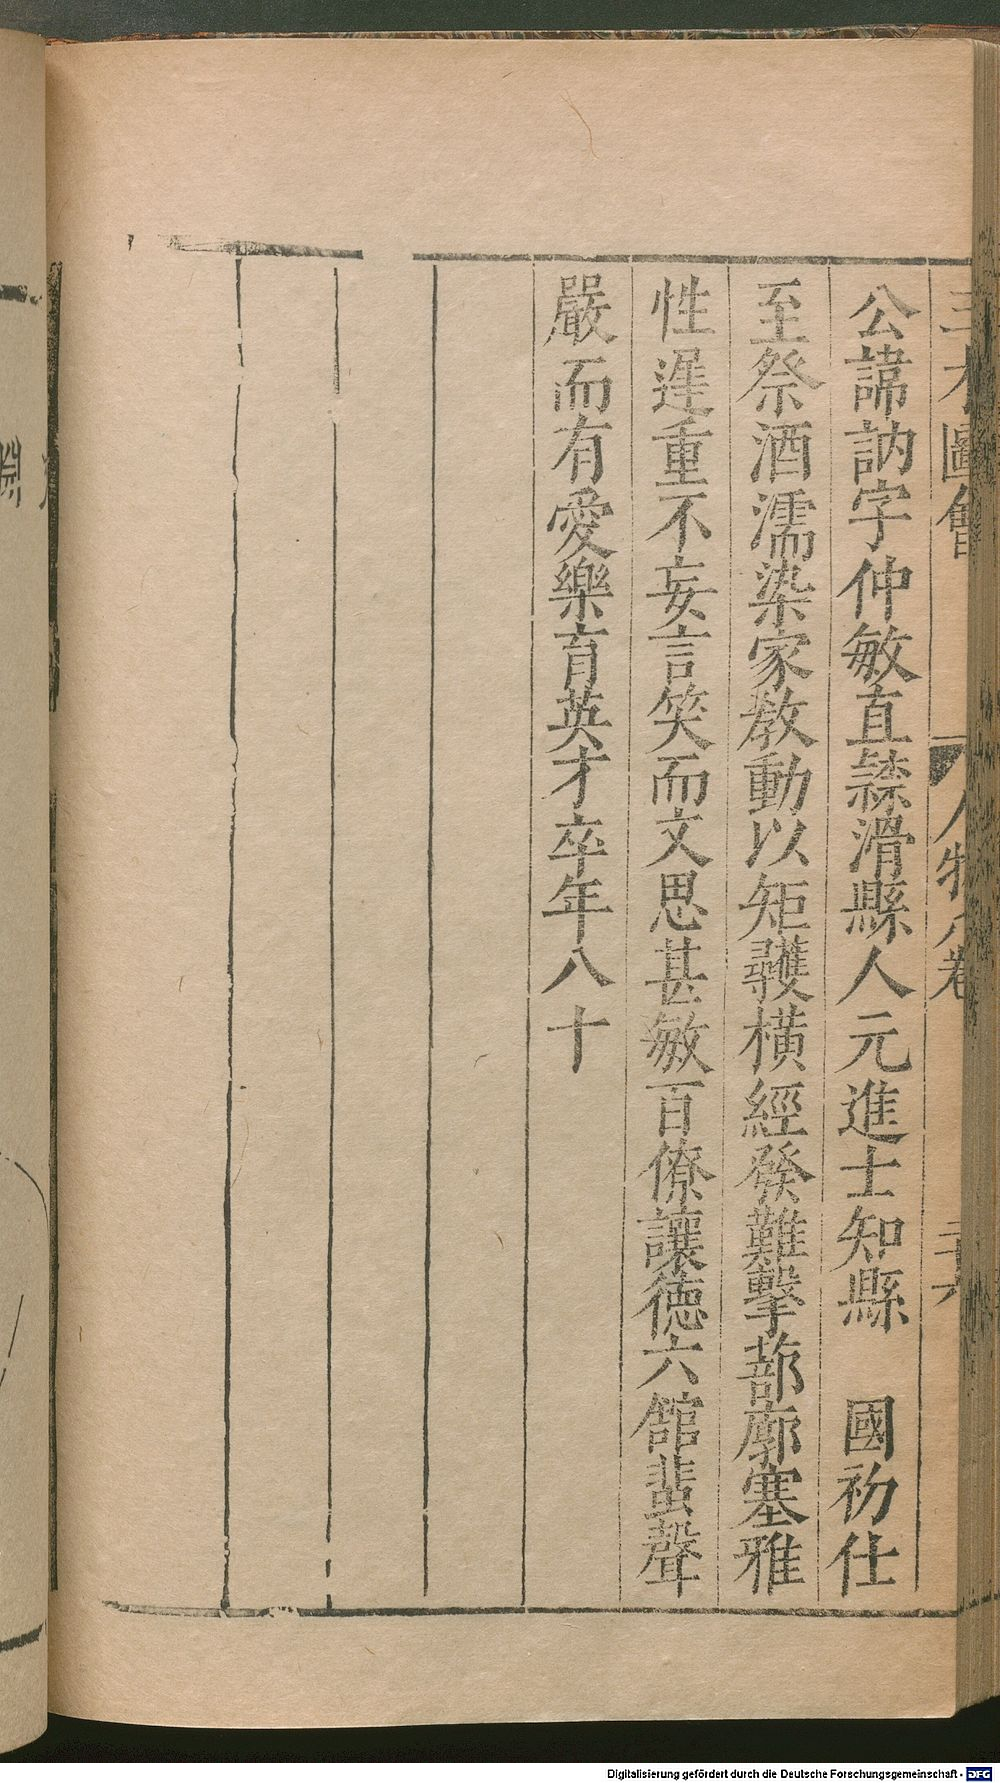 三才圖會 人物八卷 三十六
公諱訥字仲敏直𨽻滑縣人元進士知縣 國初仕
至祭酒濡染家教動以矩矱橫經發難擊蔀廓塞雅
性遲重不妄言笑而文思甚敏百僚讓德六館蜚聲
嚴而有愛樂育英才卒年八十
Digitalisierung gefördert durch die Deutsche Forschungsgemeinschaft - DFG